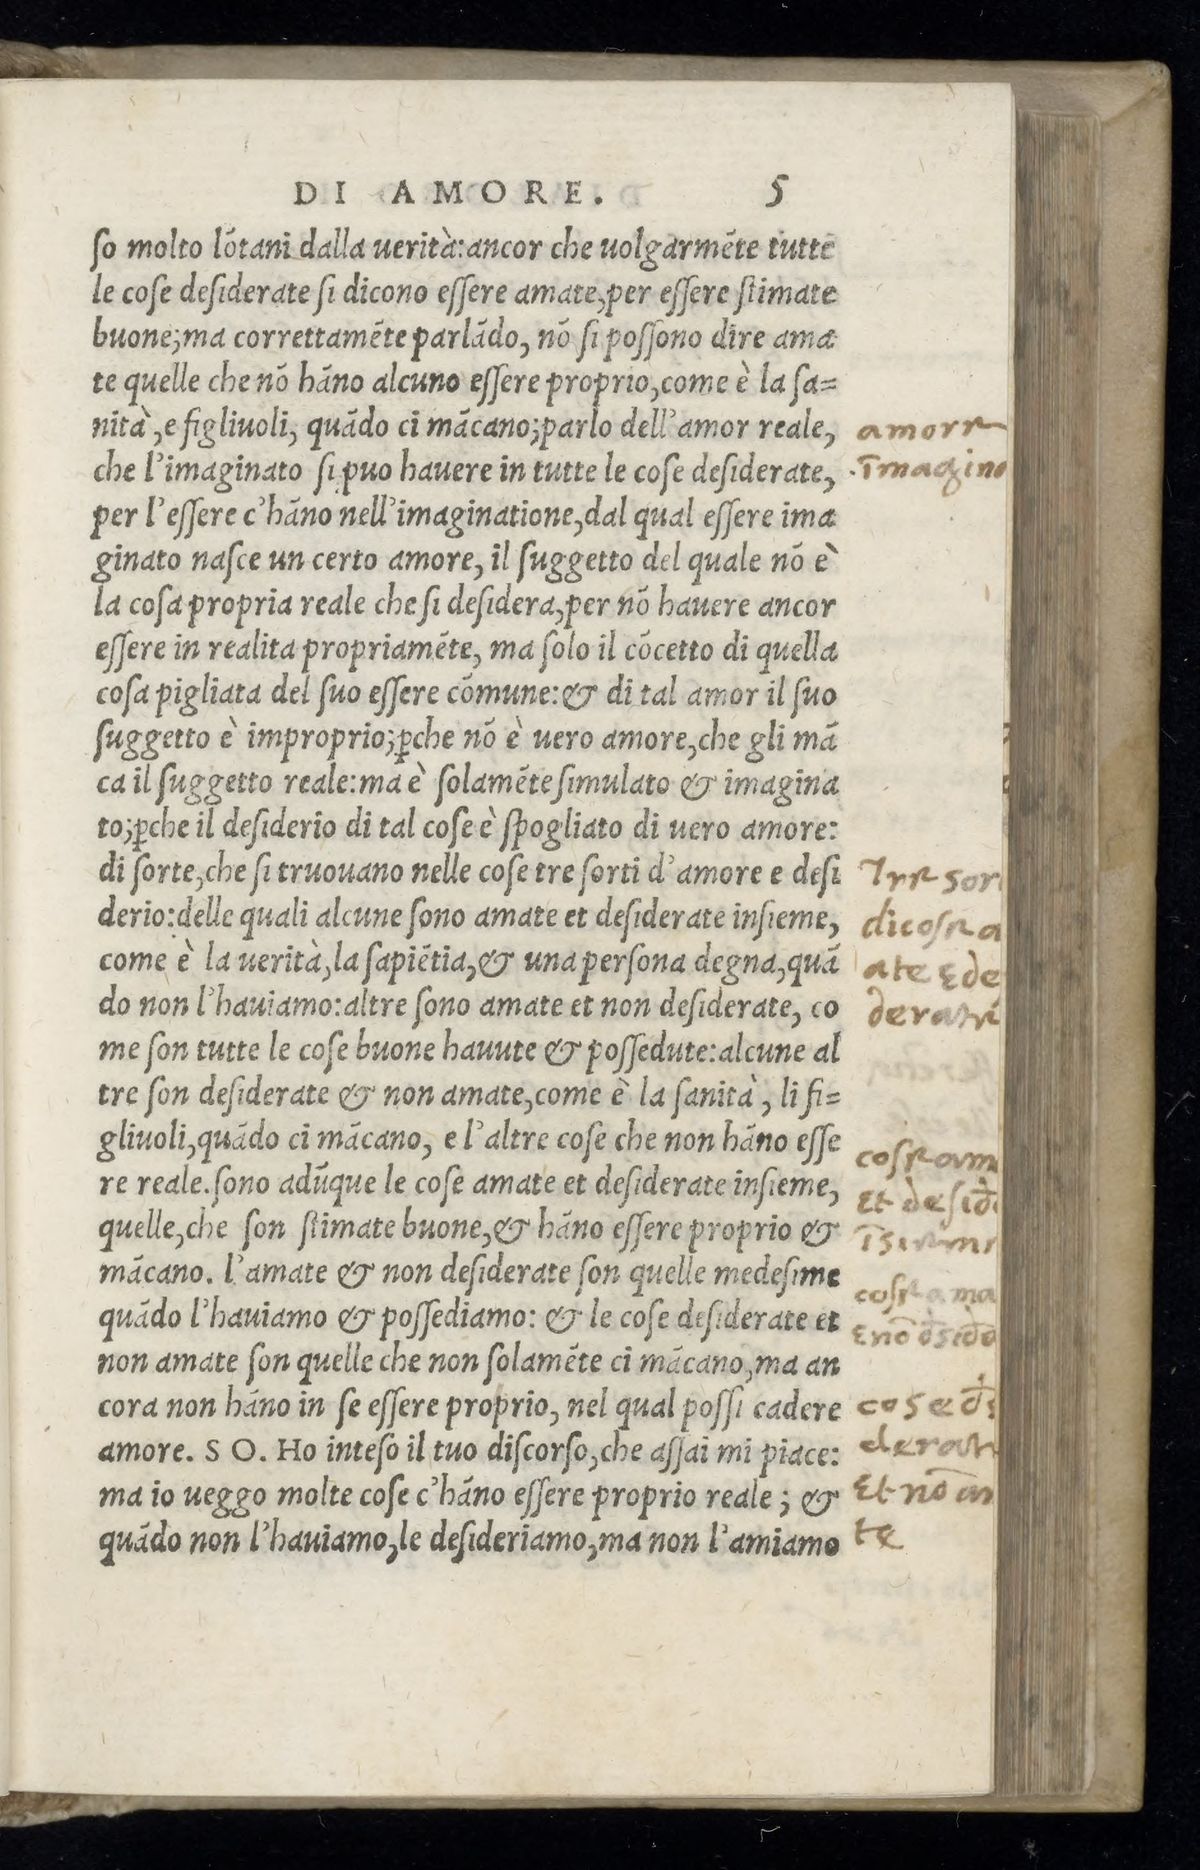 DI AMORE. 5
ſo molto lōtani dalla uerità:ancor che uolgarmēte tutte
le coſe deſiderate ſi dicono eſſere amate,per eſſere ſtimate
buone;ma correttamēte parlādo, nō ſi poſſono dire ama
te quelle che nō hāno alcuno eſſere proprio,come è la ſa=
nità,e figliuoli, quādo ci mācano;parlo dell'amor reale,
che l'imaginato ſi puo hauere in tutte le coſe deſiderate,
per l'eſſere c'hāno nell'imaginatione,dal qual eſſere ima
ginato naſce un certo amore, il ſuggetto del quale nō è
la coſa propria reale che ſi deſidera,per nō hauere ancor
eſſere in realita propriamēte, ma ſolo il cōcetto di quella
coſa pigliata del ſuo eſſere cōmune:& di tal amor il ſuo
ſuggetto è improprio;ꝑche nō è uero amore,che gli mā
ca il ſuggetto reale:ma è ſolamēte ſimulato & imagina
to;ꝑche il deſiderio di tal coſe è ſpogliato di uero amore:
di ſorte,che ſi truouano nelle coſe tre ſorti d'amore e deſi
derio:delle quali alcune ſono amate et deſiderate inſieme,
come è la uerità,la ſapiētia,& una perſona degna,quā
do non l'hauiamo:altre ſono amate et non deſiderate, co
me ſon tutte le coſe buone hauute & poſſedute:alcune al
tre ſon deſiderate & non amate,come è la ſanità, li fi=
gliuoli,quādo ci mācano, e l'altre coſe che non hāno eſſe
re reale.ſono adūque le coſe amate et deſiderate inſieme,
quelle,che ſon ſtimate buone,& hāno eſſere proprio &
mācano. l'amate & non deſiderate ſon quelle medeſime
quādo l'hauiamo & poſſediamo: & le coſe deſiderate et
non amate ſon quelle che non ſolamēte ci mācano,ma an
cora non hāno in ſe eſſere proprio, nel qual poſſi cadere
amore. S O. Ho inteſo il tuo diſcorſo,che aſſai mi piace:
ma io ueggo molte coſe c'hāno eſſere proprio reale; &
quādo non l'hauiamo,le deſideriamo,ma non l'amiamo
amore
īmagino
Tre sor
di coſe a
ate E de
derat
coſe am
Et deſid
coſe ama
E nō
coſe
derat
Et nō am
te